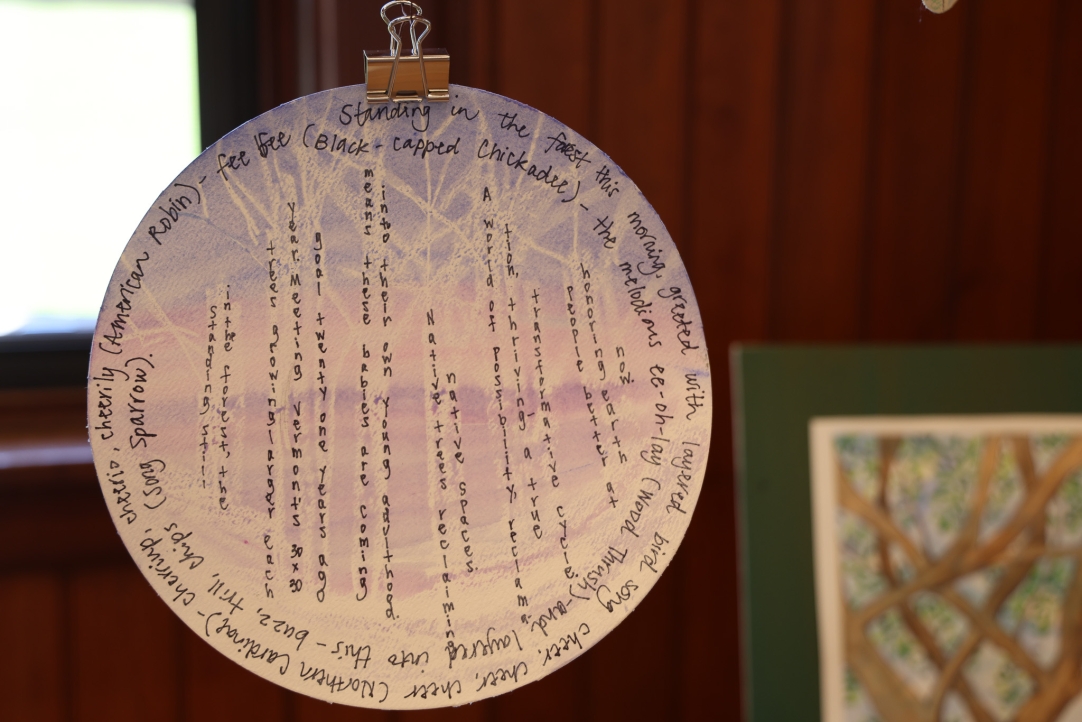 Standing in the forest this morning, greeted with layered bird song cheer, cheer, cheer (Northern Cardinal) - cherriup, cheerio, cheerily (American Robin) - fee bee (Black-capped Chickadee) - the melodious ee-oh-lay (Wood Thrush) - and layered into this - buzz, trill, chips (Song Sparrow).
Standing still
in the forest, the
trees growing larger each
year. Meeting Vermont's 30x30
goal twenty one years ago
means these babies are coming
into their own young adulthood
Native trees reclaiming
native spaces.
A world of possibility reclama-
tion, thriving, a true
transformative cycle
people better at
honoring earth
now.